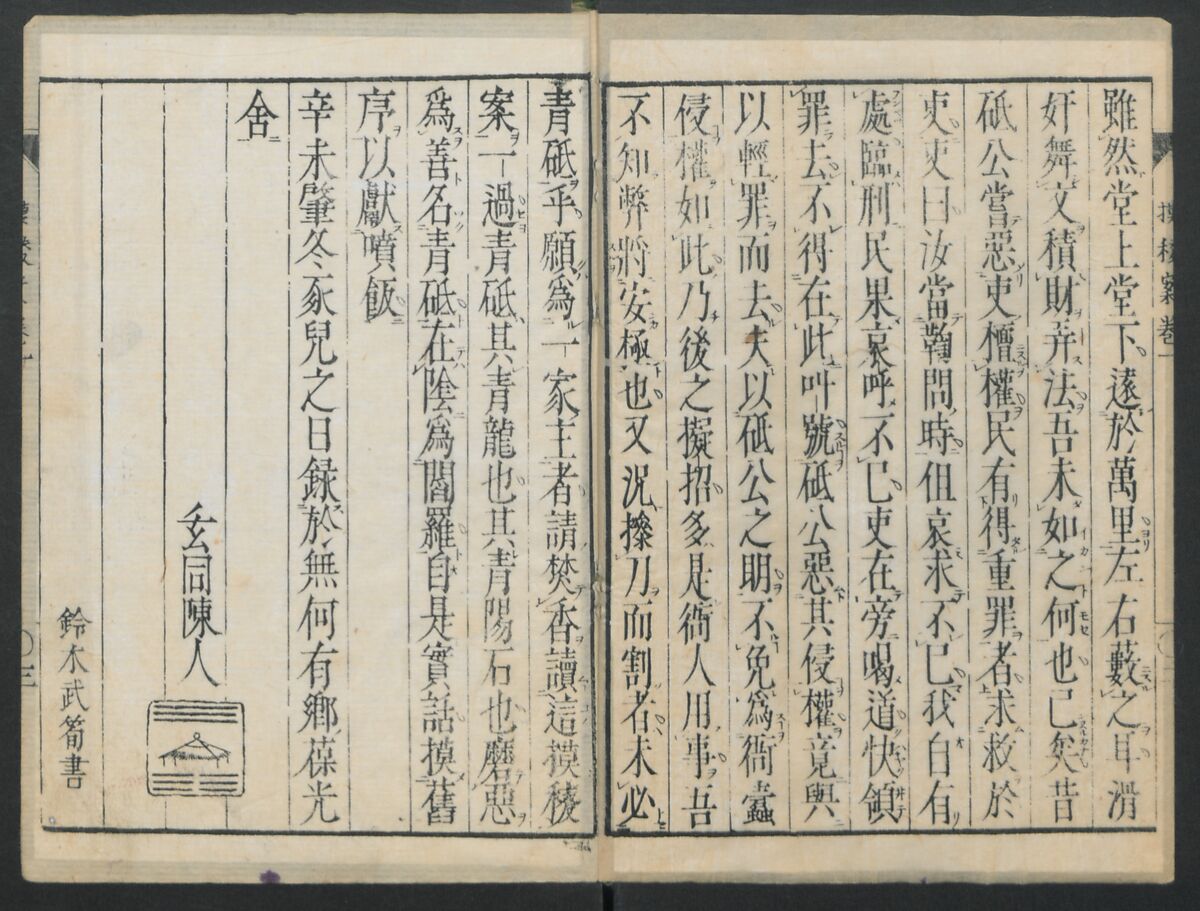 雖然堂上堂下遠於萬里左右蔽之耳滑
奸舞文積財弄法吾未如之何也已矣昔
砥公嘗惡吏檀權民有得重罪者求救於
吏吏曰汝當鞫問時但哀求不已我自有
處臨刑民果哀呼不已吏在旁喝道快領
罪去不得在此叫號砥公惡其侵權竟與
以輕罪而去夫以砥公之明不免為衙蠹
侵權如此乃後之擬招多是衙人用事吾
不知弊將安極也又況操刀而割者未必
青砥乎願為一家主者請焚香讀這摸稜
案一過青砥其青龍也其青陽石也磨惡
為善名青砥在陰為閻羅自是實話摸舊
序以獻噴飯
辛未肇冬豕兒之日録於無何有鄉葆光
舍
玄同陳人
鈴木武筍書
摸稜案卷一
〇三